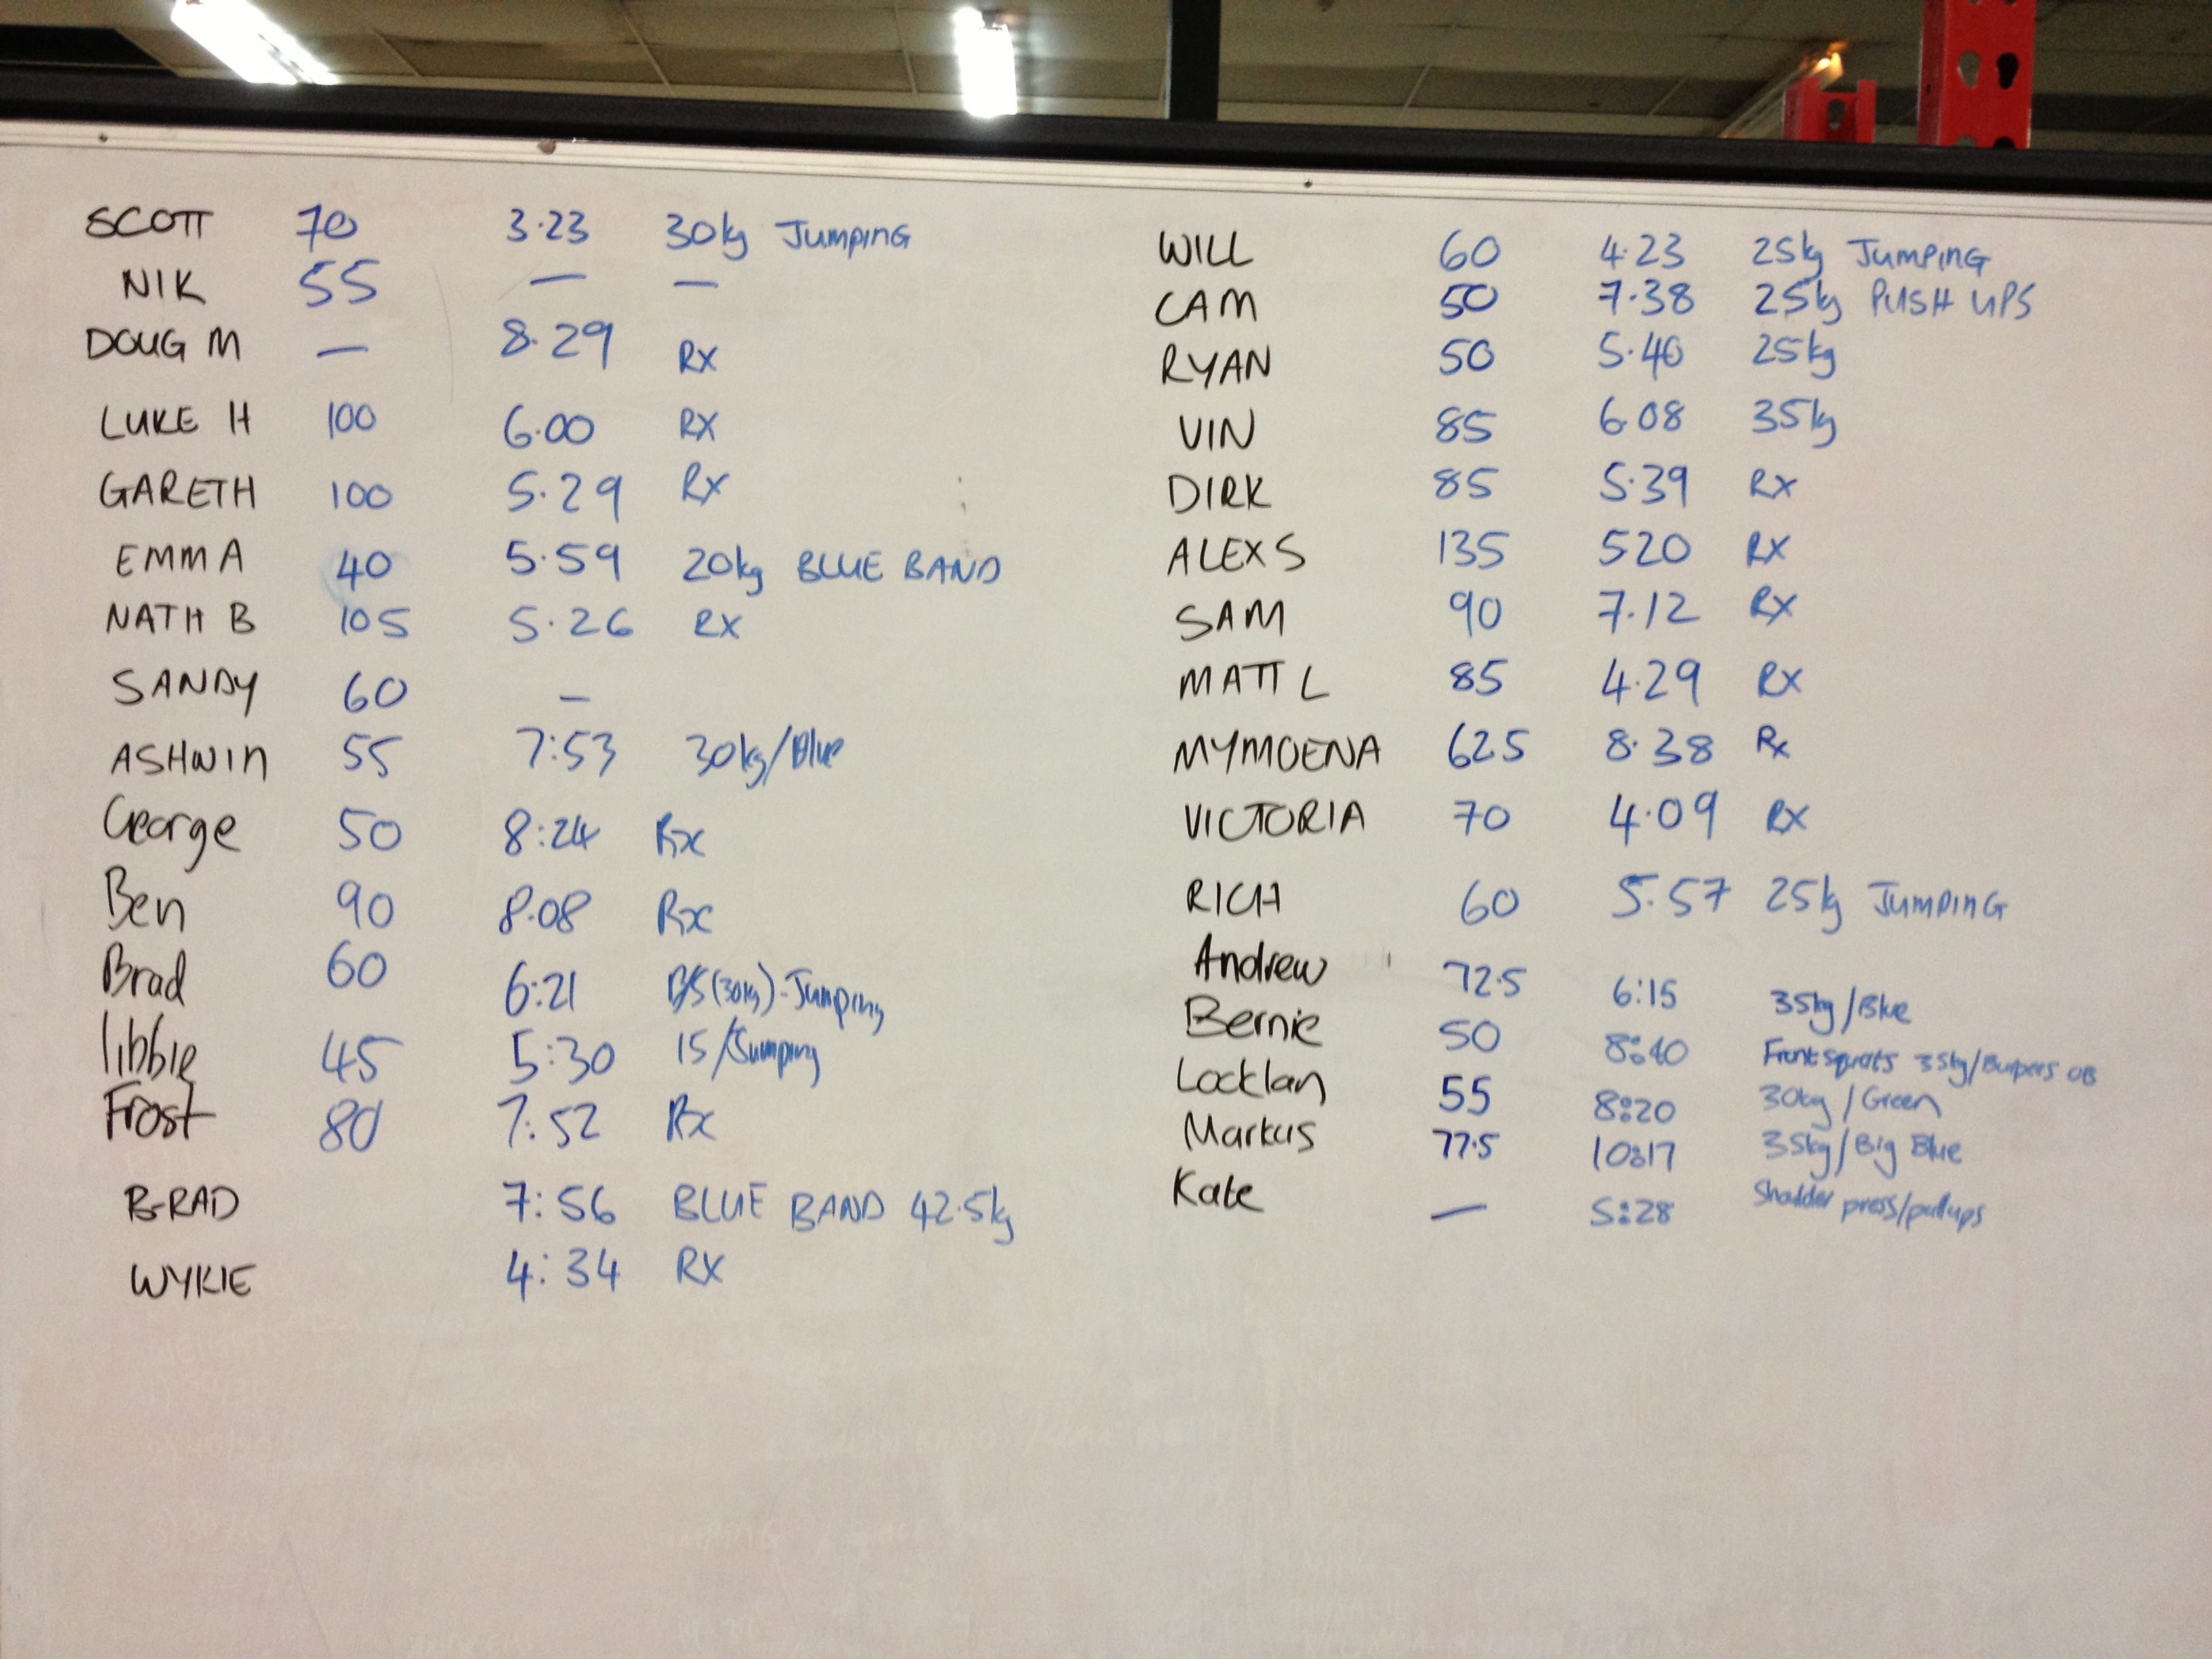 SCOTT 70 3.23 30kg JUMPING
NIK 55 — —
DOUG M — 8.29 RX
LUKE H 100 6.00 RX
GARETH 100 5.29 RX
EMMA 40 5.59 20kg BLUE BAND
NATH B 105 5.26 RX
SANDY 60 —
ASHWIN 55 7:53 30kg/Blue
George 50 8:24 Rx
Ben 90 8.08 Rx
Brad 60 6:21 B/S (30kg)-Jumping
libbie 45 5:30 15/Jumping
Frost 80 7:52 Rx
B-RAD 7:56 BLUE BAND 42.5kg
WYKIE 4:34 RX
WILL 60 4.23 25kg JUMPING
CAM 50 7.38 25kg PUSH UPS
RYAN 50 5.40 25kg
VIN 85 6.08 35kg
DIRK 85 5.39 RX
ALEX S 135 520 RX
SAM 90 7.12 RX
MATT L 85 4.29 RX
MYMOENA 62.5 8.38 Rx
VICTORIA 70 4.09 RX
RICH 60 5.57 25kg JUMPING
Andrew 72.5 6:15 35kg/Blue
Bernie 50 8:40 Front squats 35kg/Burpees OB
Locklan 55 8:20 30kg/Green
Markus 77.5 10:17 35kg/Big Blue
Kate — 5:28 Shoulder press/pullups